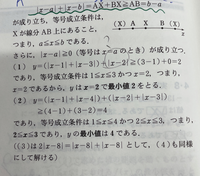 |x-a|+|x-b|=AX+BX≧AB=b-a
が成り立ち，等号成立条件は， (X) A X B (X)
Xが線分AB上にあること， x
つまり，a≦x≦bである。
さらに，|x-a|≧0（等号はx=aのとき）が成り立つ．
(1) y=(|x-1|+|x-3|)+|x-2|≧(3-1)+0=2
であり，等号成立条件は1≦x≦3かつx=2，つまり，
x=2であるから，yはx=2で最小値2をとる．
(2) y=(|x-1|+|x-4|)+(|x-2|+|x-3|)
≧(4-1)+(3-2)=4
であり，等号成立条件は1≦x≦4かつ2≦x≦3，つまり，
2≦x≦3であり，yの最小値は4である．
((3)は2|x-8|=|x-8|+|x-8|として，(4)も同様に
して解ける）